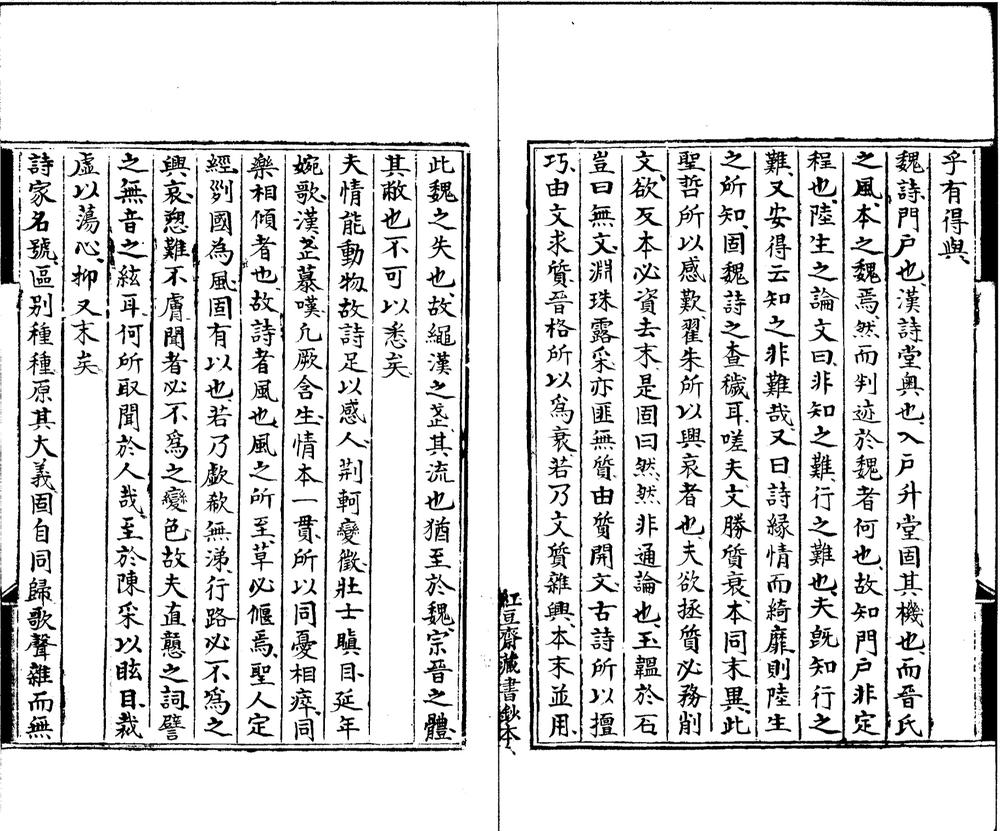 乎有得與
魏詩門戶也漢詩堂奧也入戶升堂固其機也而晉氏
之風本之魏焉然而判迹於魏者何也故知門戶非定
程也陸生之論文曰非知之難行之難也夫旣知行之
難又安得云知之非難哉又曰詩緣情而綺靡則陸生
之所知固魏詩之查穢耳嗟夫文勝質衰本同末異此
聖哲所以感歎翟朱所以興哀者也夫欲拯質必務削
文欲反本必資去末是固曰然然非通論也玉韞於石
豈曰無文淵珠露采亦匪無質由質開文古詩所以擅
巧由文求質晉格所以爲衰若乃文質雜興本末並用
此魏之失也故繩漢之武其流也猶至於魏宗晉之體
其敝也不可以悉矣
夫情能動物故詩足以感人荆軻變徵壯士瞋目延年
婉歌漢武慕嘆凡厥含生情本一貫所以同憂相瘁同
樂相傾者也故詩者風也風之所至草必偃焉聖人定
經列國為風固有以也若乃歔欷無涕行路必不爲之
興哀愬難不膚聞者必不爲之變色故夫直戇之詞譬
之無音之絃耳何所取聞於人哉至於陳采以眩目裁
虛以蕩心抑又末矣
詩家名號區别種種原其大義固自同歸歌聲雜而無
紅豆齋藏書鈔本